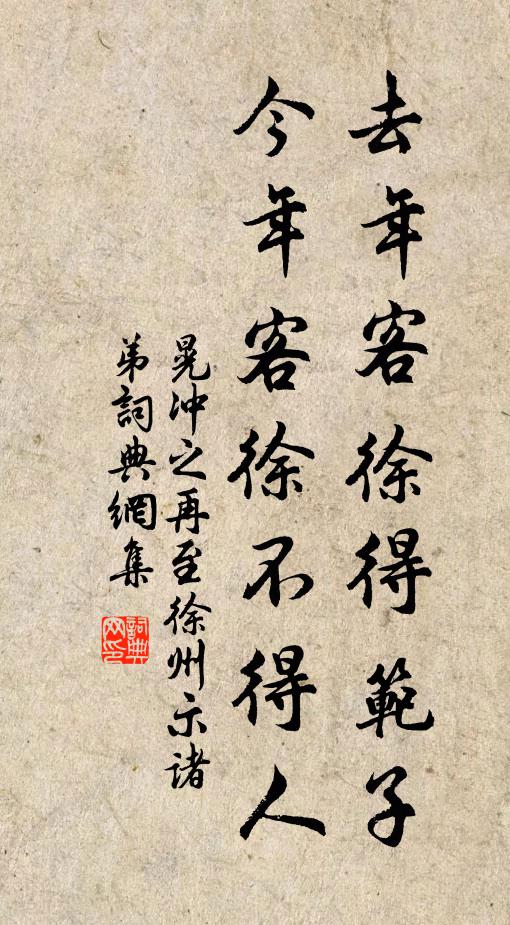 去年客徐得範子
今年客徐不得人
晃沖之再至徐州示諸
弟詞典網集
詞典网印